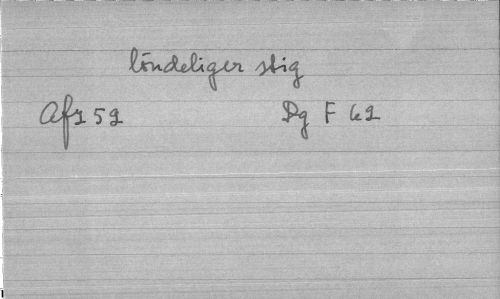 löndeliger stig
Afz 59 Dg F 62